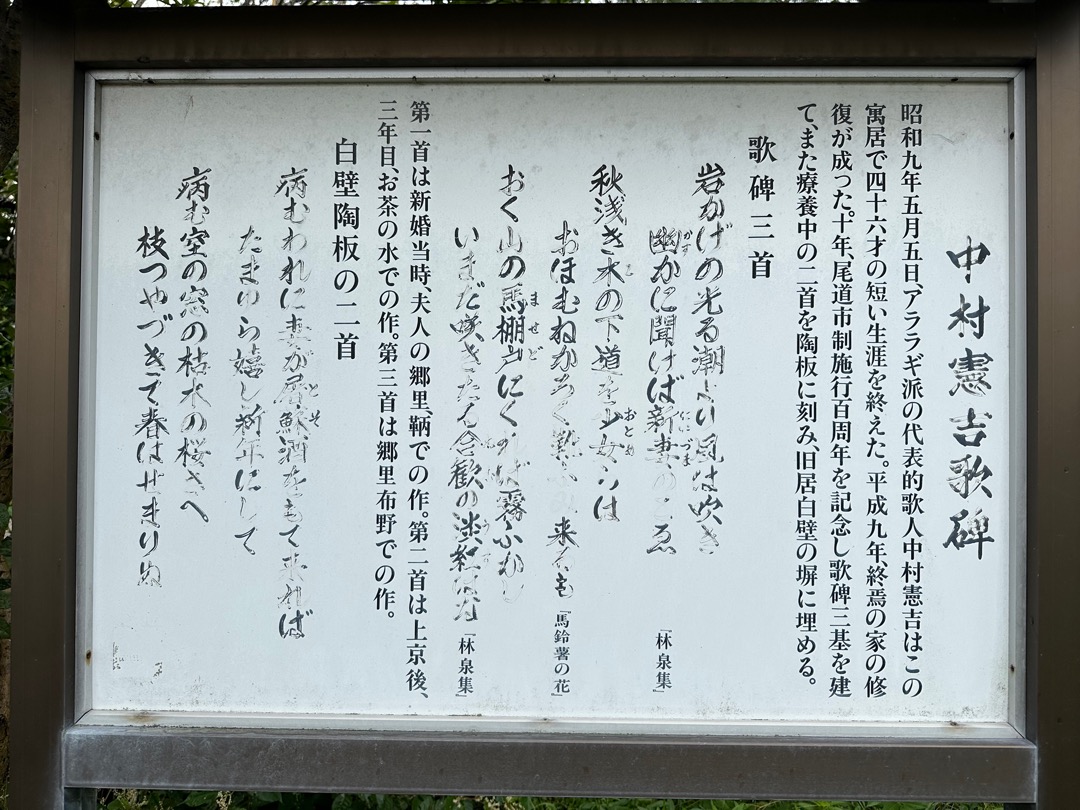 中村憲吉歌碑
昭和九年五月五日、アララギ派の代表的歌人中村憲吉はこの
寓居で四十六才の短い生涯を終えた。平成九年、終焉の家の修
復が成った。十年、尾道市制施行百周年を記念し歌碑三基を建
て、また療養中の二首を陶板に刻み、旧居白壁の塀に埋める。
歌碑三首
岩かげの光る潮より風は吹き
幽かに聞けば新妻のこゑ
『林泉集』
秋浅き木の下道を少女らは
おほむねかろく靴ふみ来るも
『馬鈴薯の花』
おく山の馬棚戸にくれば霧ふかし
いまだ咲きたる合歓の淡紅はな
『林泉集』
第一首は新婚当時、夫人の郷里、鞆での作。第二首は上京後、
三年目、お茶の水での作。第三首は郷里布野での作。
白壁陶板の二首
病むわれに妻が屠蘇酒をもて来れば
たまゆら嬉し新年にして
病む室の窓の枯木の桜さへ
枝つやづきて春はせまりぬ